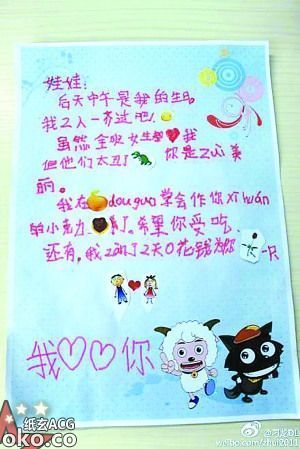 娃娃:
后天中午是我的生日
我2人一齐过吧!
虽然全班女生都 我
但他们太丑了 你是zui美
丽。
我在 douguo学会作你xi huan
的小 力 了。希望你爱吃
还有,我 了2天0花钱为你 一只
我 你
纸玄ACG
oko.co
weibo.com/zhui2011